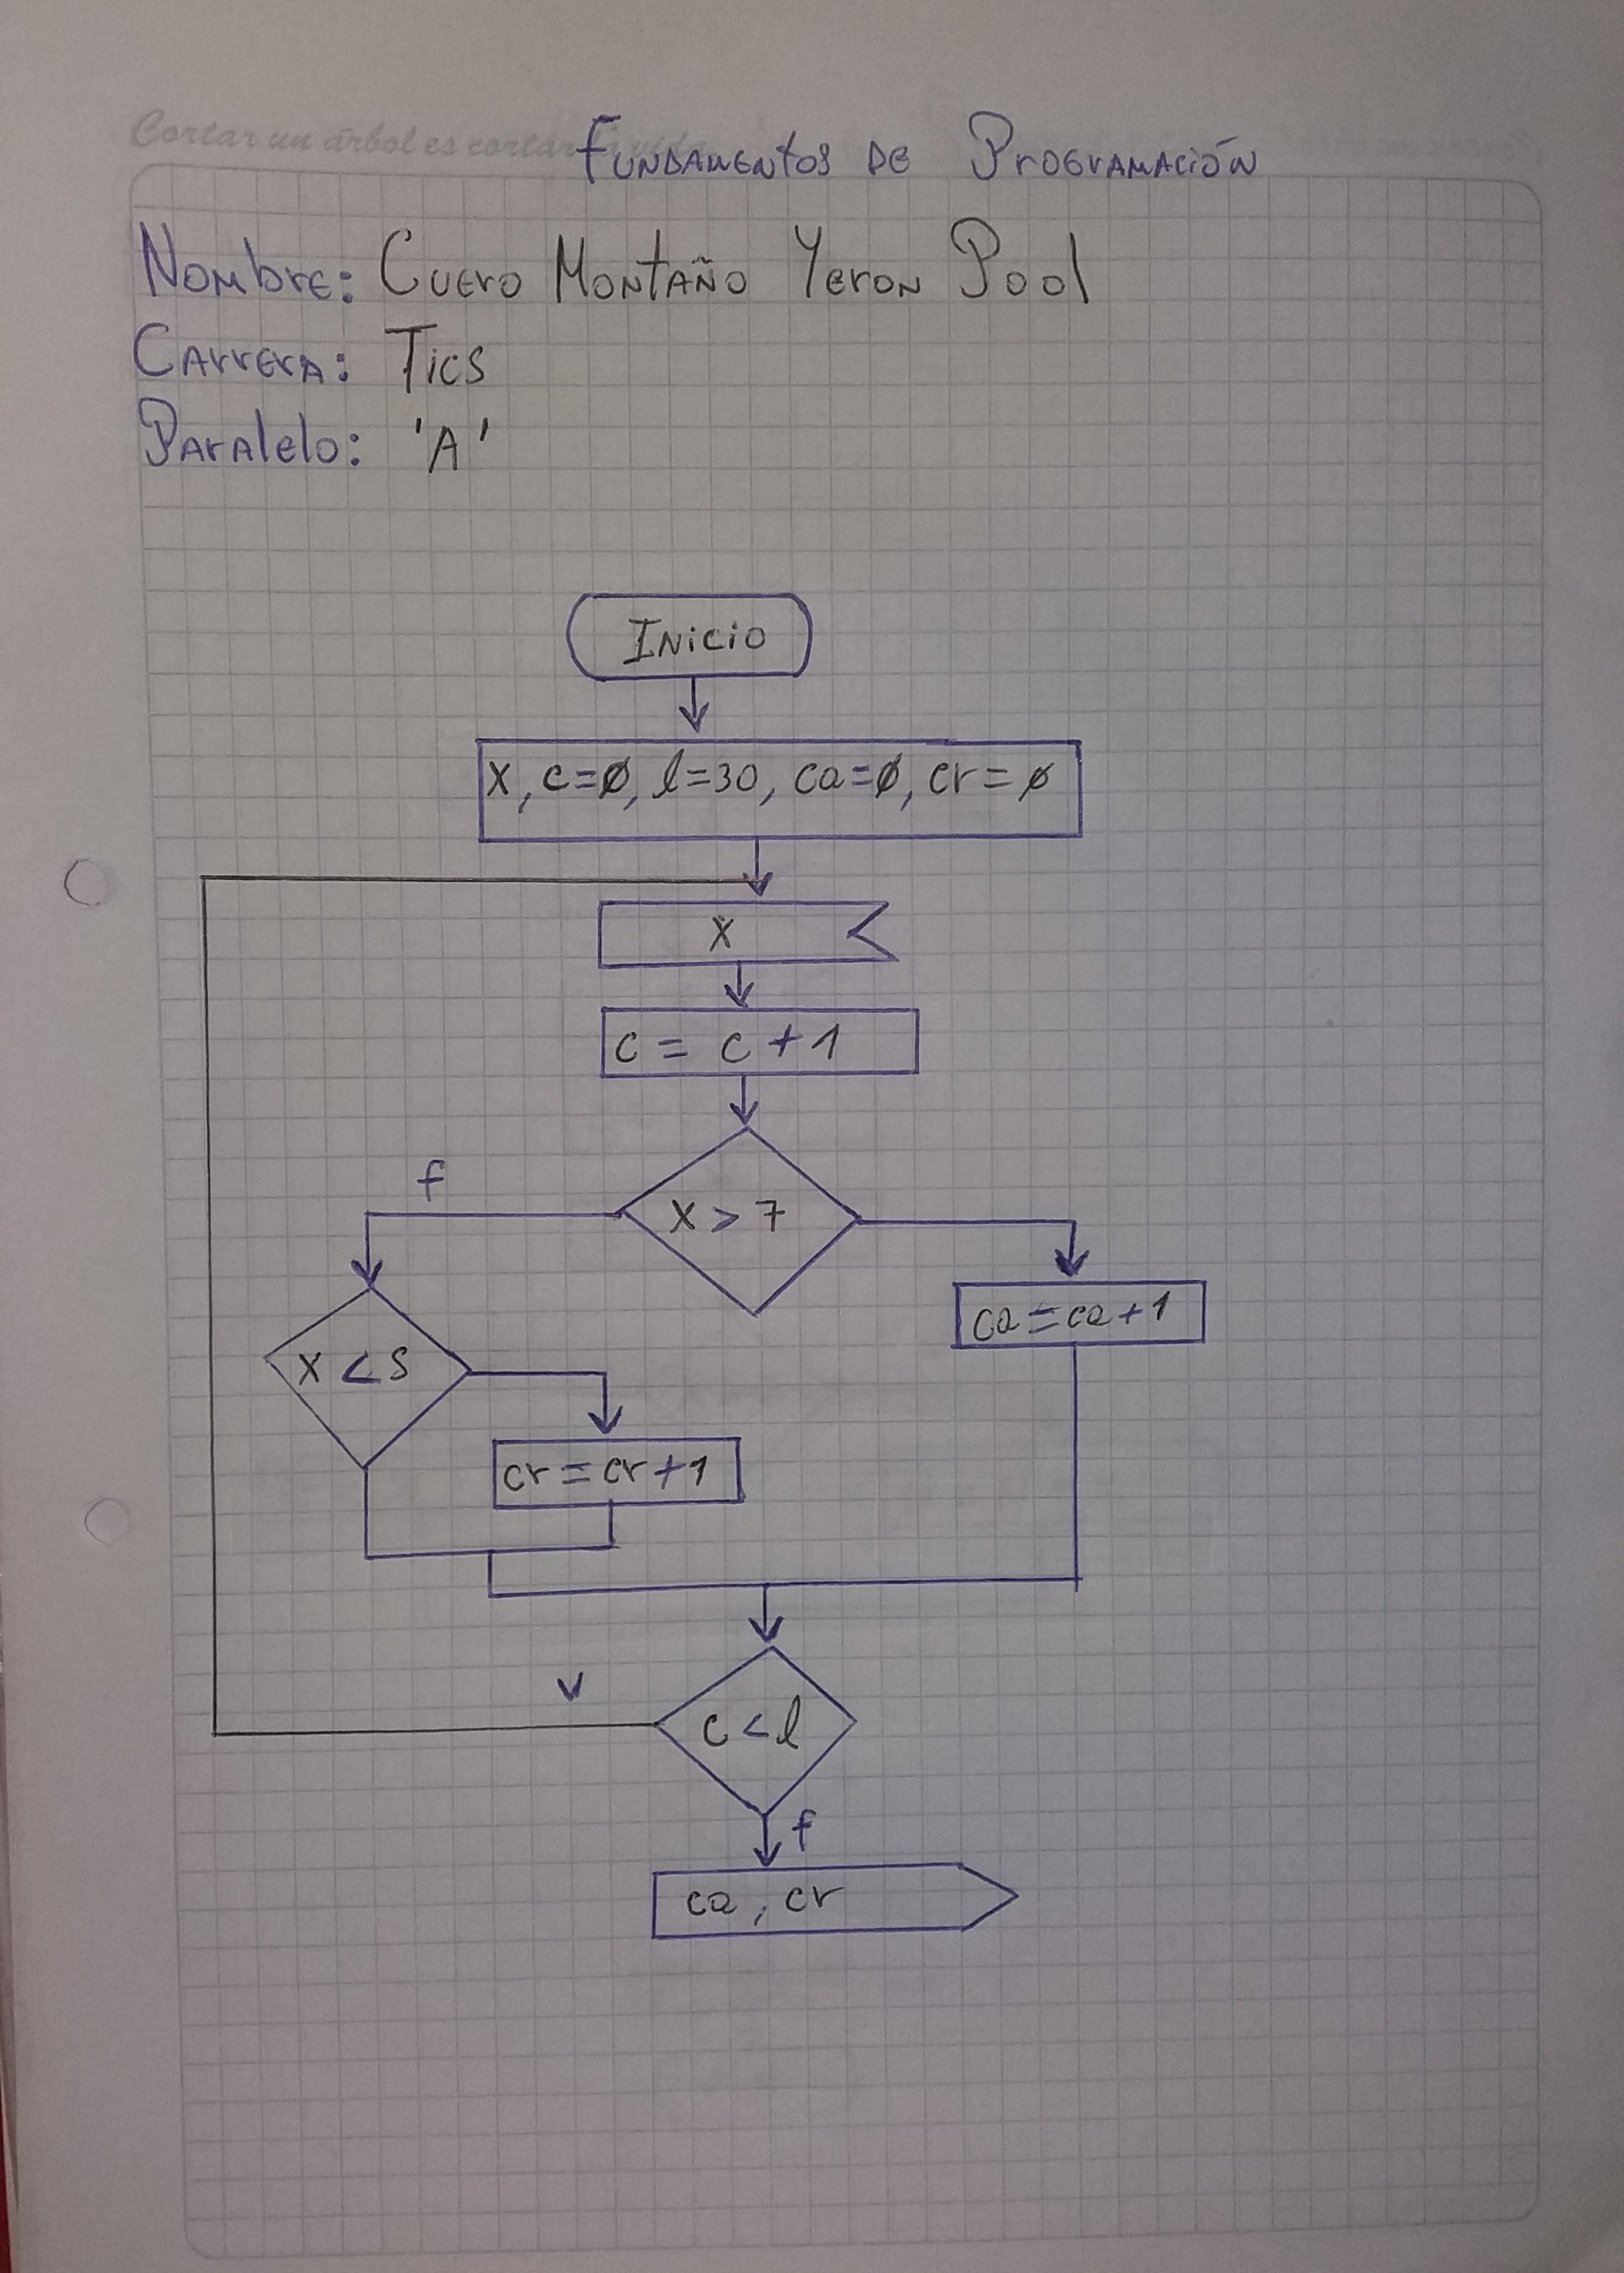 Cortar un árbol es cortar
Fundamentos de Programación
Nombre: Cuero Montaño Yeron Pool
Carrera: Tics
Paralelo: 'A'
Inicio
X, c=Ø, l=30, ca=Ø, cr=Ø
X
c = c + 1
f
X > 7
ca = ca + 1
X < 5
cr = cr + 1
v
c < l
f
ca, cr